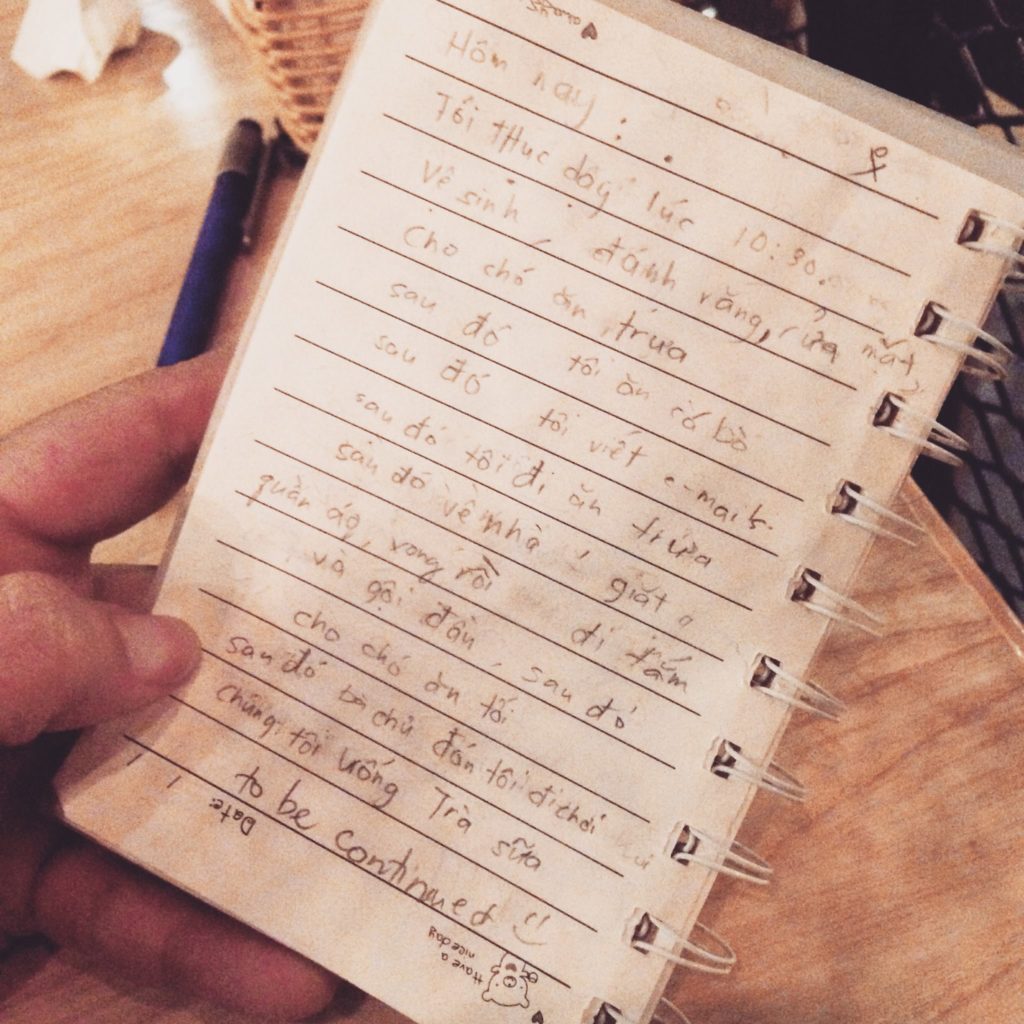 Hôm nay :
Tôi thuc dậy lúc 10:30.
Vê sinh, đánh răng, rửa mặt,
cho chó ăn trưa
sau đó tôi ăn cơ bò
sau đó tôi viết e-mail.
sau đó tôi đi ăn trưa
sau đó về nhà giăt
quần áo, xong rồi đi tắm
và gội đầu, sau đó
cho chó ăn tối
sau đó bà chủ đón tôi đi chơi
chúng tôi uống Trà sữa
to be continued
Date:
Have a
nice day